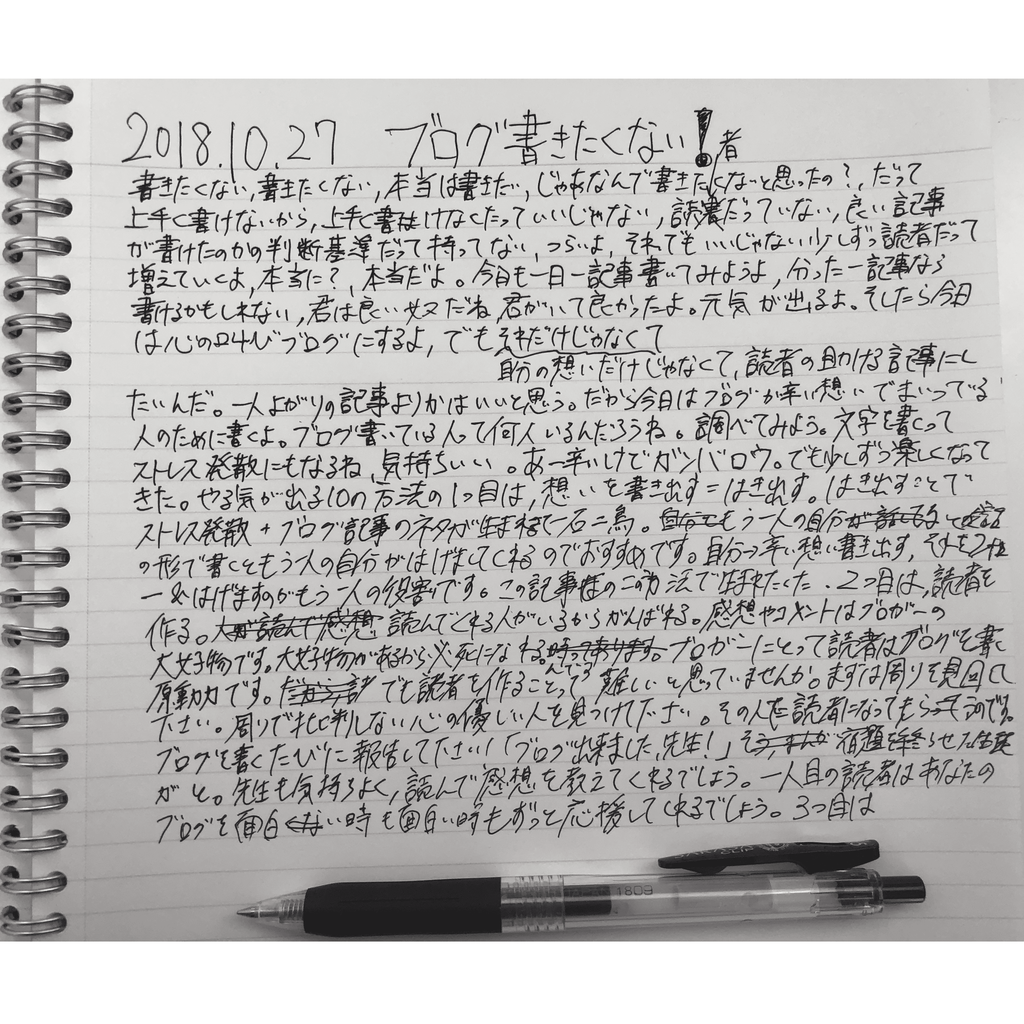 2018.10.27 ブログ書きたくない!
者
書きたくない,書きたくない,本当は書きたい,じゃあなんで書きたくないと思ったの?,だって
上手く書けないから,上手く書けなくたっていいじゃない,読者だっていない,良い記事
が書けたのかの判断基準だって持ってない,つらいよ,それでもいいじゃない少しずつ読者だって
増えていくよ,本当に?,本当だよ。今日も一日一記事書いてみようよ,分った一記事なら
書けるかもしれない,君は良い奴だね君がいて良かったよ。元気が出るよ。そしたら今日
は心の叫びブログにするよ,でもそれだけじゃなくて
自分の想いだけじゃなくて,読者の助ける記事にし
たいんだ。一人よがりの記事よりかはいいと思う。だから今日はブログが辛い想いでまいっている
人のために書くよ。ブログ書いている人って何人いるんだろうね。調べてみよう。文字を書くって
ストレス発散にもなるね,気持ちいい。あー辛いけどガンバロウ。でも少しずつ楽しくなって
きた。やる気が出る10の方法の1つ目は,想いを書き出す=はき出す。はき出すことで
ストレス発散+ブログ記事のネタが生まれて一石二鳥。もう一人の自分
の形で書くともう一人の自分がはげましてくれるのでおすすめです。自分→辛い想い書き出す,それを
はげますのがもう一人の役割です。この記事はこの方法で生まれた。2つ目は,読者を
作る。読んでくれる人がいるからがんばれる。感想やコメントはブロガーの
大好物です。大好物があるから必死になれる。ブロガーにとって読者はブログを書く
原動力です。でも読者を作ることってんでも難しいと思っていませんか。まずは周りを見回して
下さい。周りで批判しない心の優しい人を見つけて下さい。その人に読者になってもらってうのです。
ブログを書くたびに報告して下さい!「ブログ出来ました,先生!」宿題を終らせた生徒
がと。先生も気持ちよく,読んで感想を教えてくれるでしょう。一人目の読者はあなたの
ブログを面白くない時も面白い時もずっと応援してくれるでしょう。3つ目は
1809